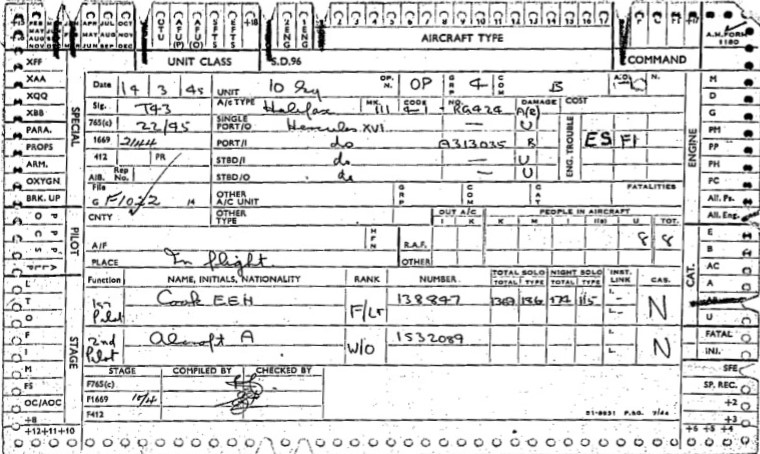 FEB MAR APR JUL OCT
MAY JUN AUG SEP NOV DEC
OTU AFU (P) AFU (O) SFTS EFTS +18 2 ENG 1 ENG
1 2 3 4 5 6 7 8 9 10 11 12 13 14 15 16 17
AIRCRAFT TYPE
A.M. FORM 1180
UNIT CLASS S.D.96 COMMAND
XFF
XAA
XQQ
XBB
PARA.
PROPS
ARM.
OXYGN
BRK. UP
SPECIAL
Date 14 3 45 UNIT 10 Sq OP. N. OP GRP 4 COM B A.O. N.
Sig. T43 A/c TYPE Halifax MK. III CODE NO. RG424 DAMAGE A(R) COST
765(c) 22/45 SINGLE PORT/O Hercules XVI — U
1669 2144 PORT/I do A313035 B ENG. TROUBLE ES F1
412 PR STBD/I do — U
AIB. Rep No. STBD/O do — U
File G F1022 14 OTHER A/C UNIT GRP COM CAT FATALITIES
CNTY OTHER TYPE OUT A/C PEOPLE IN AIRCRAFT
I K K M I I(s) U TOT.
A/F HFN R.A.F. 8 8
PLACE In flight OTHER
Function NAME, INITIALS, NATIONALITY RANK NUMBER TOTAL SOLO NIGHT SOLO INST. LINK CAS.
TOTAL TYPE TOTAL TYPE
1st Pilot Cook E E H F/Lt 138847 186 174 115 L- N
2nd Pilot Alcroft A W/O 1532089 L. N
STAGE COMPILED BY CHECKED BY
F765(c)
F1669 10/4
F412
PILOT
STAGE
L
T
O
F
I
M
FS
OC/AOC
+8
+12 +11 +10
M
D
G
PM
PP
PH
PC
All. Ps.
All. Eng.
ENGINE
E
B
AC
A
U
CAT.
FATAL
INJ.
SFE
SP. REC.
+2
+3
+6 +5 +4